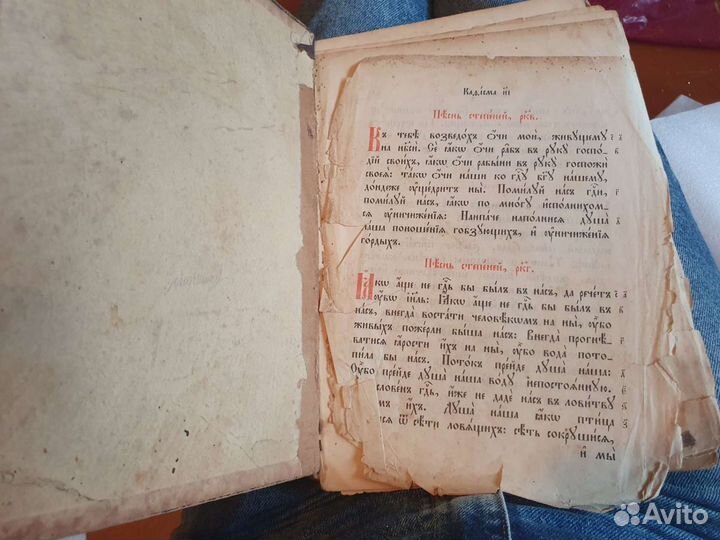 Каѳісма и҃і
Пѣснь степеней, рк҃в.
Къ тебѣ возведохъ ѻ҆́чи мои̑, живꙋщемꙋ
на нб҃си́. Се ꙗ҆́кѡ ѻ҆́чи ра̑бъ въ рꙋкꙋ̀ госпо-
ді́й свои́хъ, ꙗ҆́кѡ ѻ҆́чи рабы́ни въ рꙋкꙋ̀ госпожѝ
своеѧ̀: та́кѡ ѻ҆́чи на́ши ко гд҇ꙋ бг҃ꙋ на́шемꙋ,
до́ндеже ᲂу҆ще́дритъ ны̀. Поми́лꙋй на́съ гд҇и,
поми́лꙋй на́съ, ꙗ҆́кѡ по мно́гꙋ и҆спо́лнихом-
сѧ ᲂу҆ничиже́нїѧ: Наипа́че напо́лнисѧ дꙋша̀
на́ша поноше́нїѧ гобзꙋ́ющихъ, и҆ ᲂу҆ничиже́нїѧ
го́рдыхъ.
Пѣснь степеней, рк҃г.
Ꙗ҆́кѡ а҆́ще не гд҇ь бы бы́лъ въ на́съ, да рече́тъ
ᲂу҆́бѡ і҆и҃ль: Ꙗ҆́кѡ а҆́ще не гд҇ь бы бы́лъ въ
на́съ, внегда̀ воста́ти человѣ́кѡмъ на ны̀, ᲂу҆́бѡ
живы́хъ поже́рли бы́ша на́съ: Внегда̀ прогнѣ́-
ватисѧ ꙗ҆́рости и҆́хъ на ны̀, ᲂу҆́бѡ вода̀ пото-
пи́ла бы на́съ. Пото́къ пре́йде дꙋша̀ на́ша:
Оу҆́бѡ пре́йде дꙋша̀ на́ша во́дꙋ непостоѧ́ннꙋю.
словенъ гд҇ь, и҆́же не дадѐ на́съ въ лови́твꙋ
мъ и҆́хъ. Дꙋша̀ на́ша ꙗ҆́кѡ пти́ца
сѧ ѿ сѣ́ти ловѧ́щихъ: сѣ́ть сокрꙋши́сѧ,
и҆ мы̀
Avito